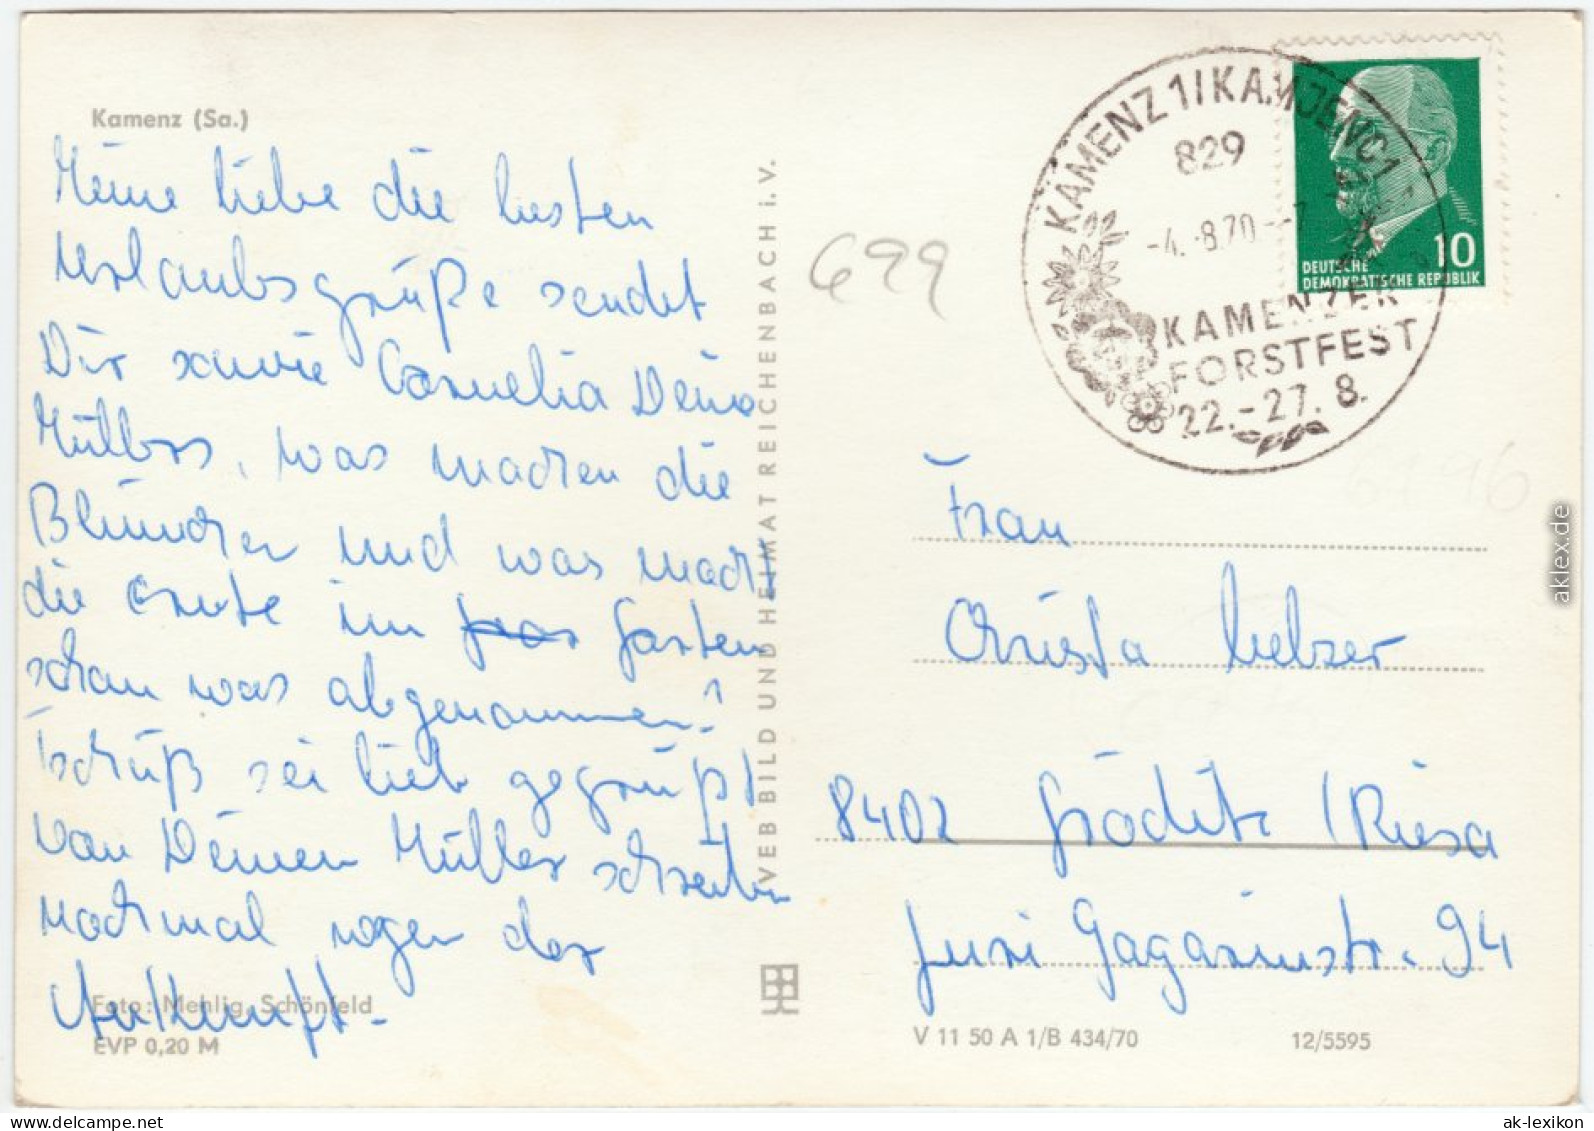 Kamenz (Sa.)
Meine liebe die besten
Urlaubsgrüße sendet
Dir sowie Cornelia Deine
Mutter, was machen die
Blümchen und was macht
die Ernte im Garten
schon was abgenommen?
Tschüß sei lieb gegrüßt
von Deinen Müller schreiben
nochmal wegen der
Ankunft.
Foto: Mehlig, Schönfeld
EVP 0,20 M
VEB BILD UND HEIMAT REICHENBACH i. V.
699
KAMENZ 1/KAMJENC 1
829
-4.-8.70--7
KAMENZER
FORSTFEST
22.-27. 8.
10
DEUTSCHE
DEMOKRATISCHE REPUBLIK
Frau
Christa Melzer
8402 Gröditz /Riesa
Juri Gagarinstr. 94
V 11 50 A 1/B 434/70
12/5595
aklex.de
delcampe.net
ak-lexikon